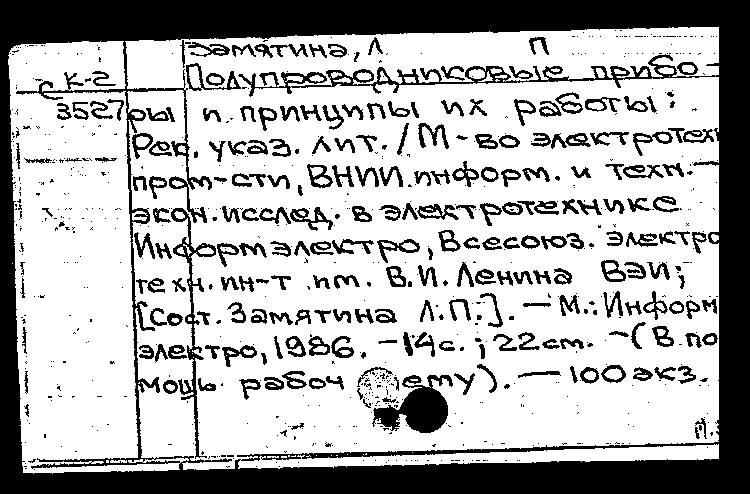 Замятина, Л П
с К-2 Полупроводниковые прибо-
3527 ры и принципы их работы:
Рек. указ. лит. / М-во электротехн
пром-сти, ВНИИ информ. и техн.-
экон. исслед. в электротехнике
Информэлектро, Всесоюз. электро
техн. ин-т им. В.И. Ленина ВЭИ;
[Сост. Замятина Л.П.]. — М.: Информ
электро, 1986. - 14 с.; 22 см. - (В по
мощь рабоч ему). — 100 экз.